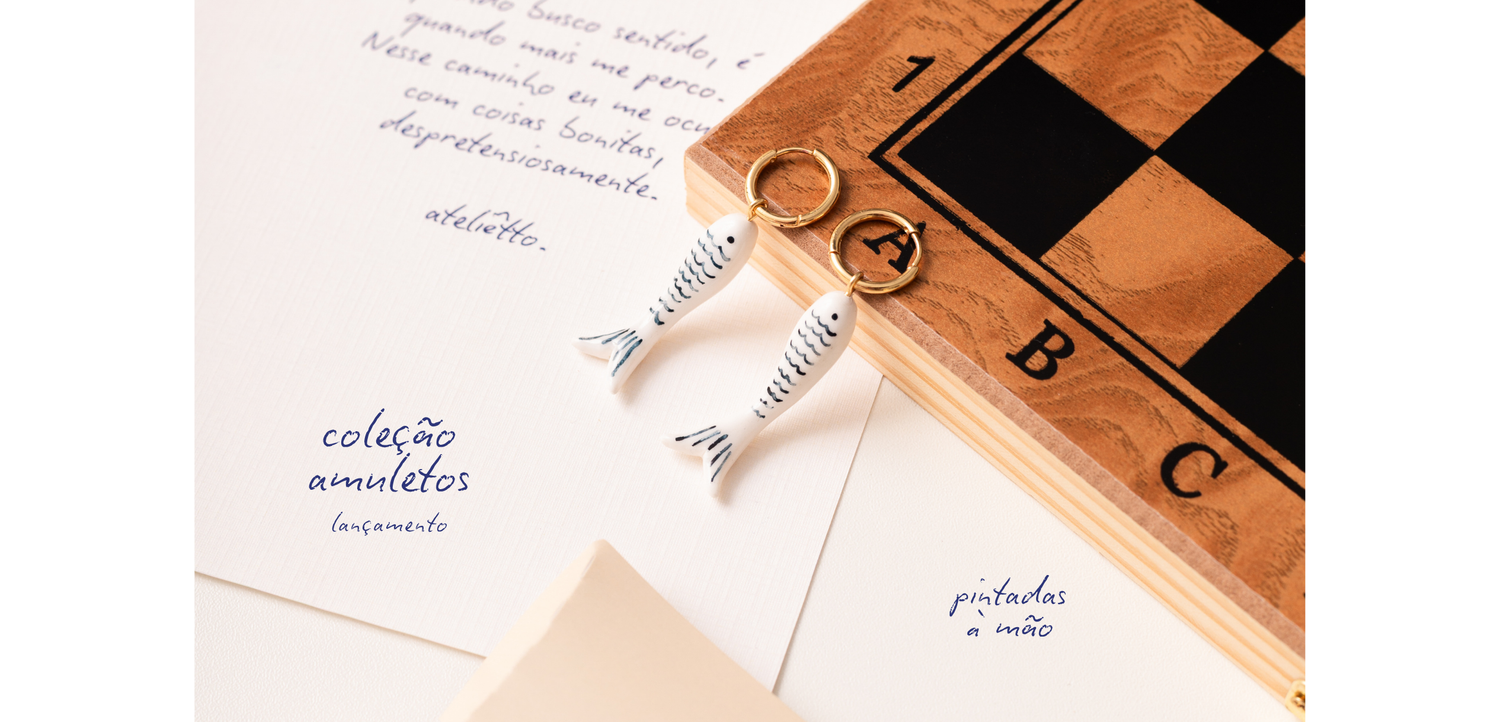 busco sentido, é
quando mais me perco.
Nesse caminho eu me
com coisas bonitas,
despretensiosamente.
ateliêtto.
coleção
amuletos
lançamento
pintadas
à mão
1
A
B
C